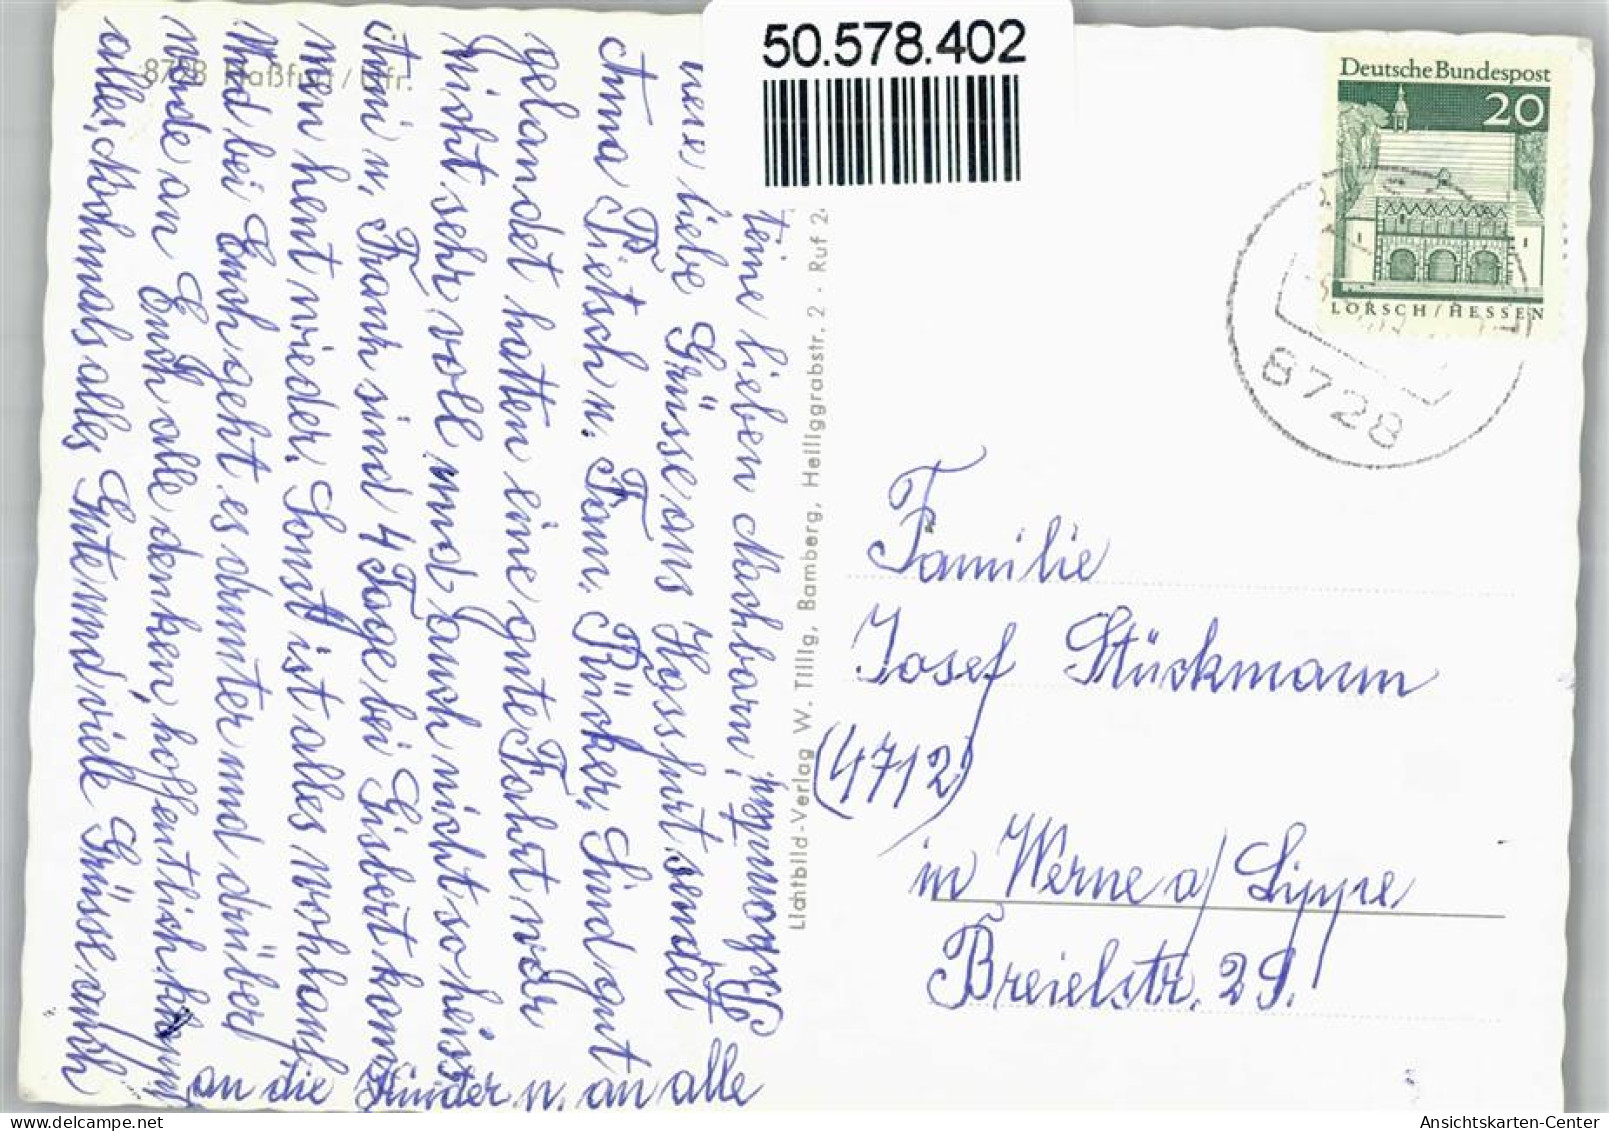 50.578.402
8728 Haßfurt / Ufr.
Deutsche Bundespost
20
LORSCH / HESSEN
8728
Lichtbild-Verlag W. Tillig, Bamberg, Heiliggrabstr. 2 · Ruf 2
lieben Nachbarn,
liebe Grüsse aus Hassfurt sendet
Anna Pietsch u. Fam. Rücker, Sind gut
gelandet hatten eine gute Fahrt war
nicht sehr voll und auch nicht so heiss
u. Frank sind 4 Tage bei Gisbert kom
men heut wieder. Sonst ist alles wohlauf
Und bei Euch geht es drunter und drüber
an Euch alle denken, hoffentlich klappt
alles, Nochmals alles Gute und viele Grüsse auch
an die Kinder u. an alle
Familie
Josef Stückmann
(4712)
in Werne a/ Lippe,
Breielstr. 29!
Ansichtskarten-Center